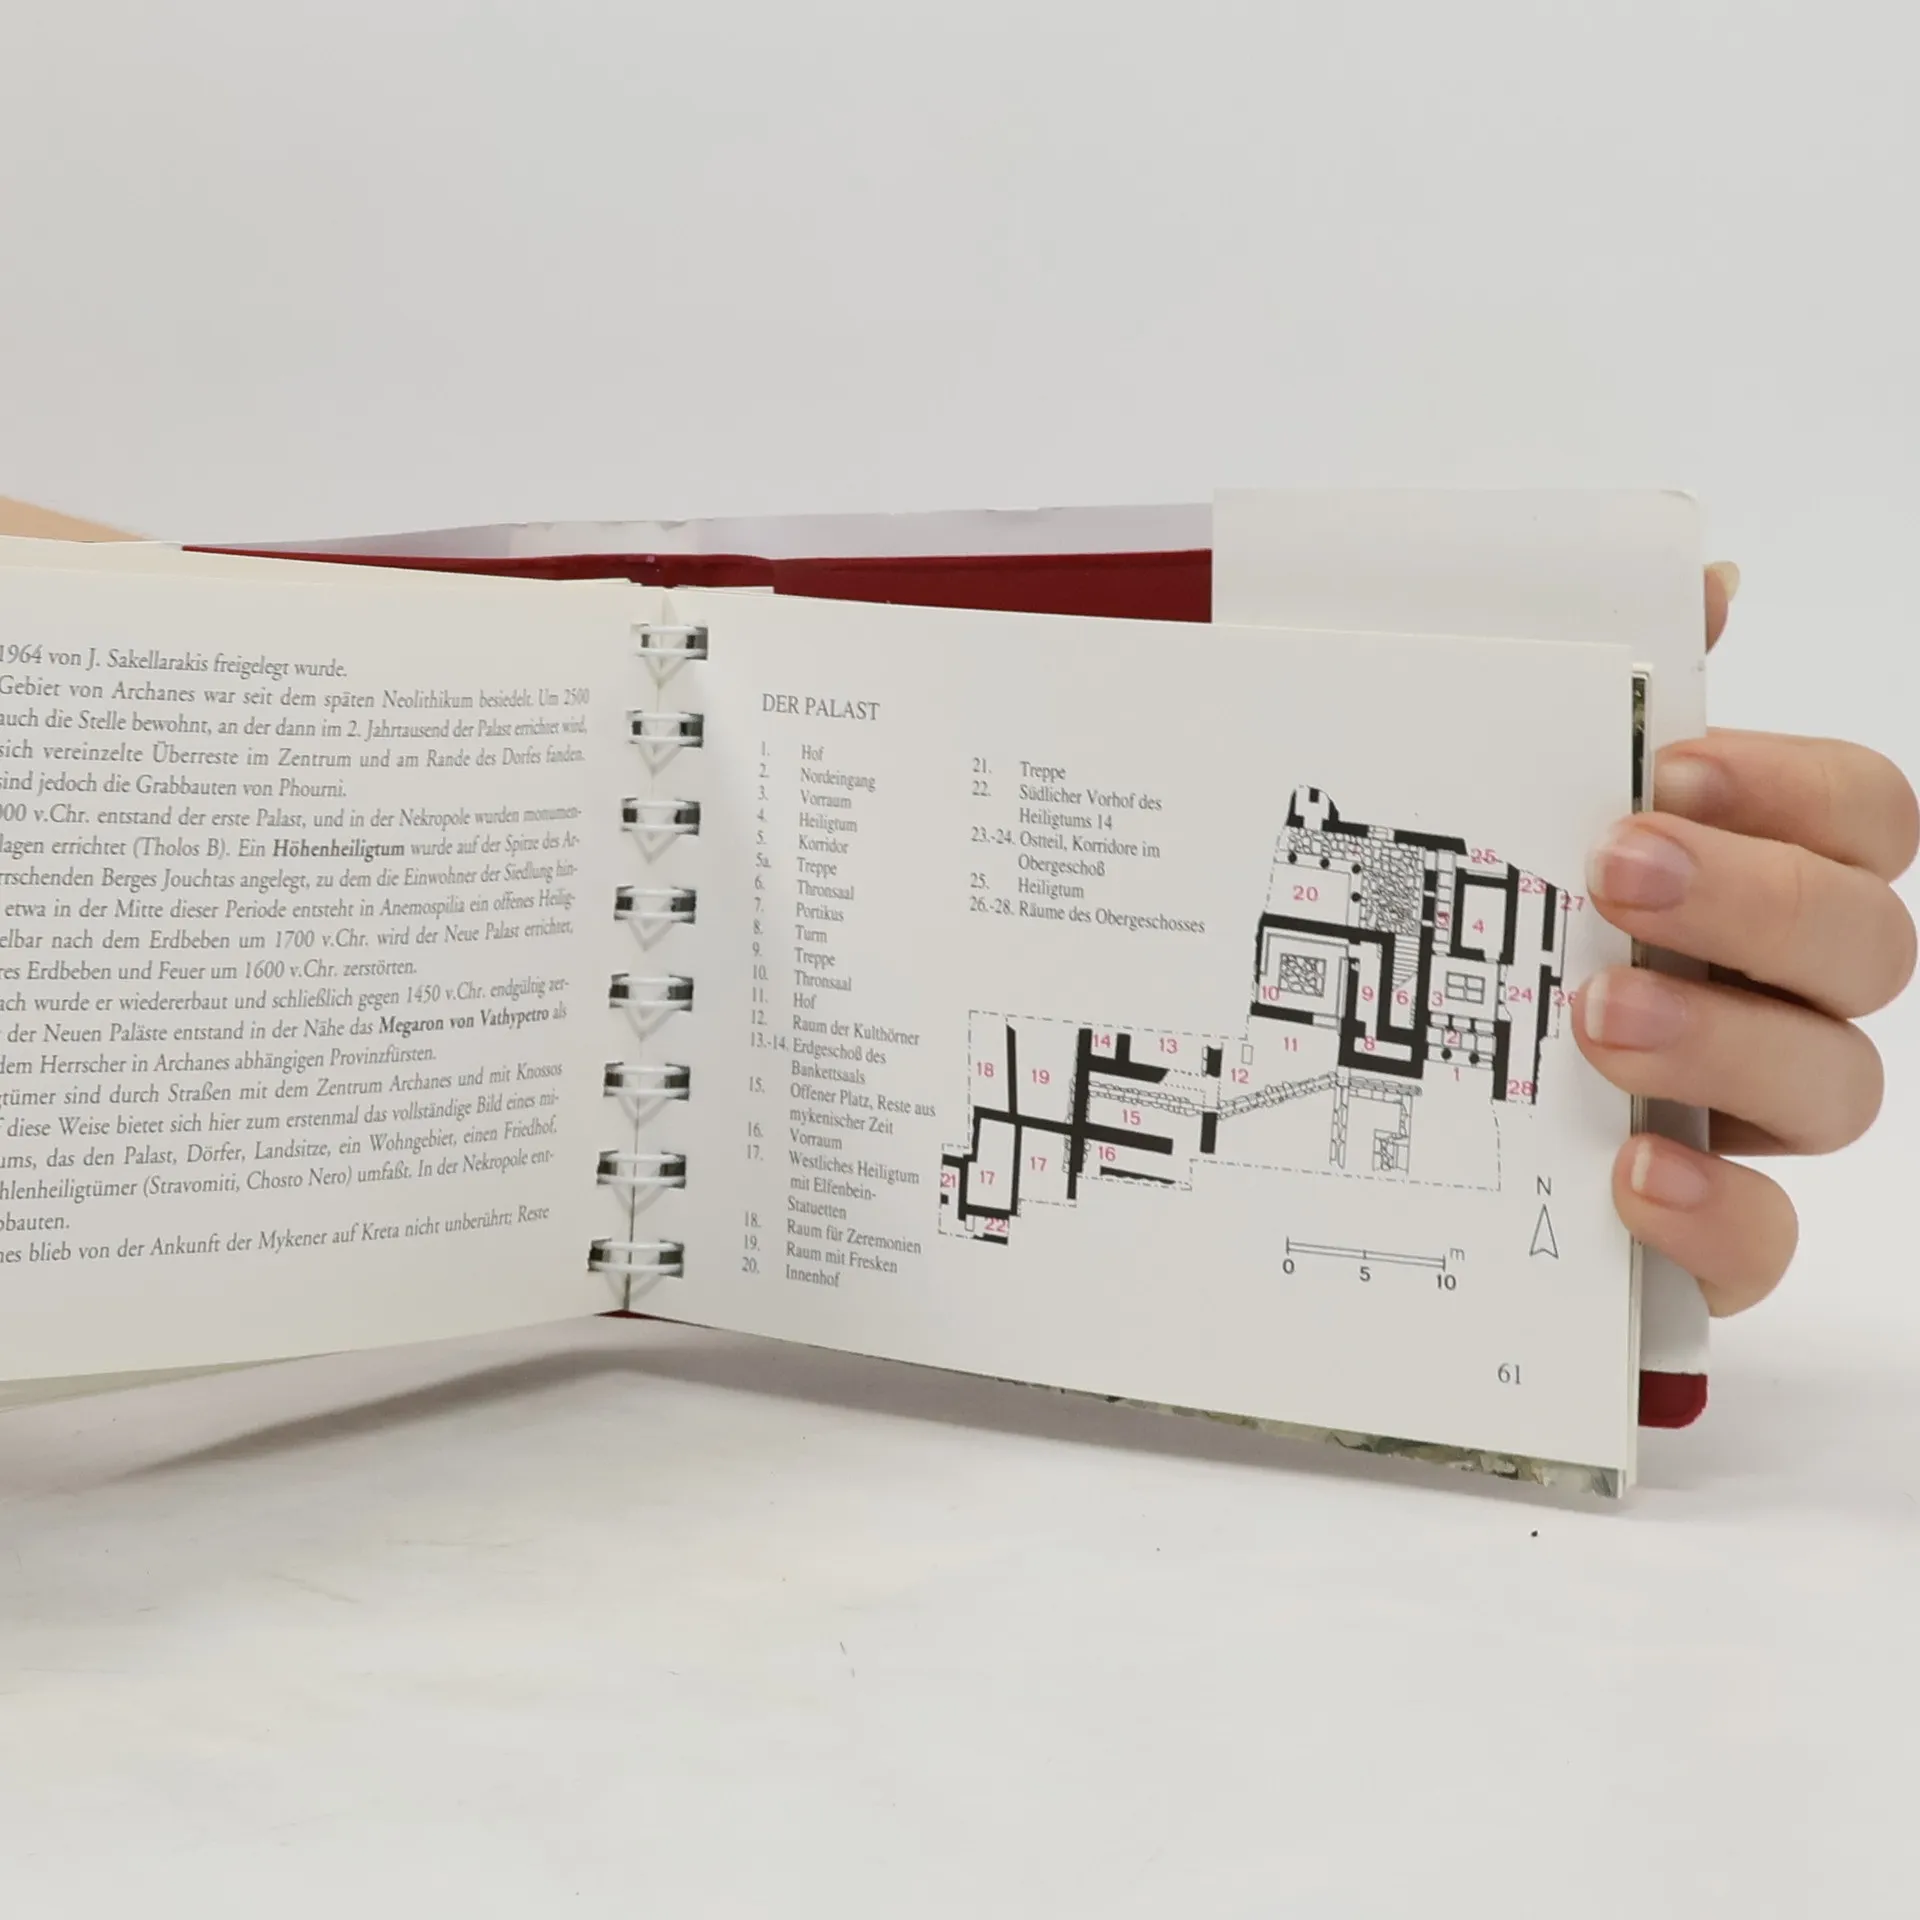 1964 von J. Sakellarakis freigelegt wurde.
Gebiet von Archanes war seit dem späten Neolithikum besiedelt. Um 2500
auch die Stelle bewohnt, an der dann im 2. Jahrtausend der Palast errichtet wird,
sich vereinzelte Überreste im Zentrum und am Rande des Dorfes fanden.
sind jedoch die Grabbauten von Phourni.
000 v.Chr. entstand der erste Palast, und in der Nekropole wurden monumen-
lagen errichtet (Tholos B). Ein Höhenheiligtum wurde auf der Spitze des Ar-
rrschenden Berges Jouchtas angelegt, zu dem die Einwohner der Siedlung hin-
etwa in der Mitte dieser Periode entsteht in Anemospilia ein offenes Heilig-
elbar nach dem Erdbeben um 1700 v.Chr. wird der Neue Palast errichtet,
res Erdbeben und Feuer um 1600 v.Chr. zerstörten.
ach wurde er wiedererbaut und schließlich gegen 1450 v.Chr. endgültig zer-
der Neuen Paläste entstand in der Nähe das Megaron von Vathypetro als
dem Herrscher in Archanes abhängigen Provinzfürsten.
gtümer sind durch Straßen mit dem Zentrum Archanes und mit Knossos
f diese Weise bietet sich hier zum erstenmal das vollständige Bild eines mi-
ums, das den Palast, Dörfer, Landsitze, ein Wohngebiet, einen Friedhof,
hlenheiligtümer (Stravomiti, Chosto Nero) umfaßt. In der Nekropole ent-
bbauten.
nes blieb von der Ankunft der Mykener auf Kreta nicht unberührt; Reste
DER PALAST
1. Hof
2. Nordeingang
3. Vorraum
4. Heiligtum
5. Korridor
5a. Treppe
6. Thronsaal
7. Portikus
8. Turm
9. Treppe
10. Thronsaal
11. Hof
12. Raum der Kulthörner
13.-14. Erdgeschoß des
Bankettsaals
15. Offener Platz, Reste aus
mykenischer Zeit
16. Vorraum
17. Westliches Heiligtum
mit Elfenbein-
Statuetten
18. Raum für Zeremonien
19. Raum mit Fresken
20. Innenhof
21. Treppe
22. Südlicher Vorhof des
Heiligtums 14
23.-24. Ostteil, Korridore im
Obergeschoß
25. Heiligtum
26.-28. Räume des Obergeschosses
25
23
27
20
4
10
9
6
3
24
11
8
2
1
28
14
13
12
18
19
15
16
17
17
21
22
N
m
0
5
10
61